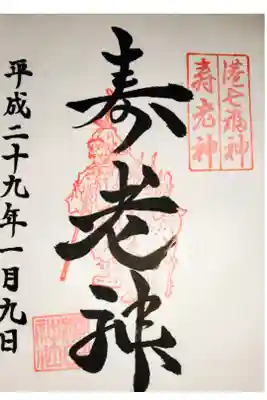 港七福神
寿老神
寿老神
平成二十九年一月九日